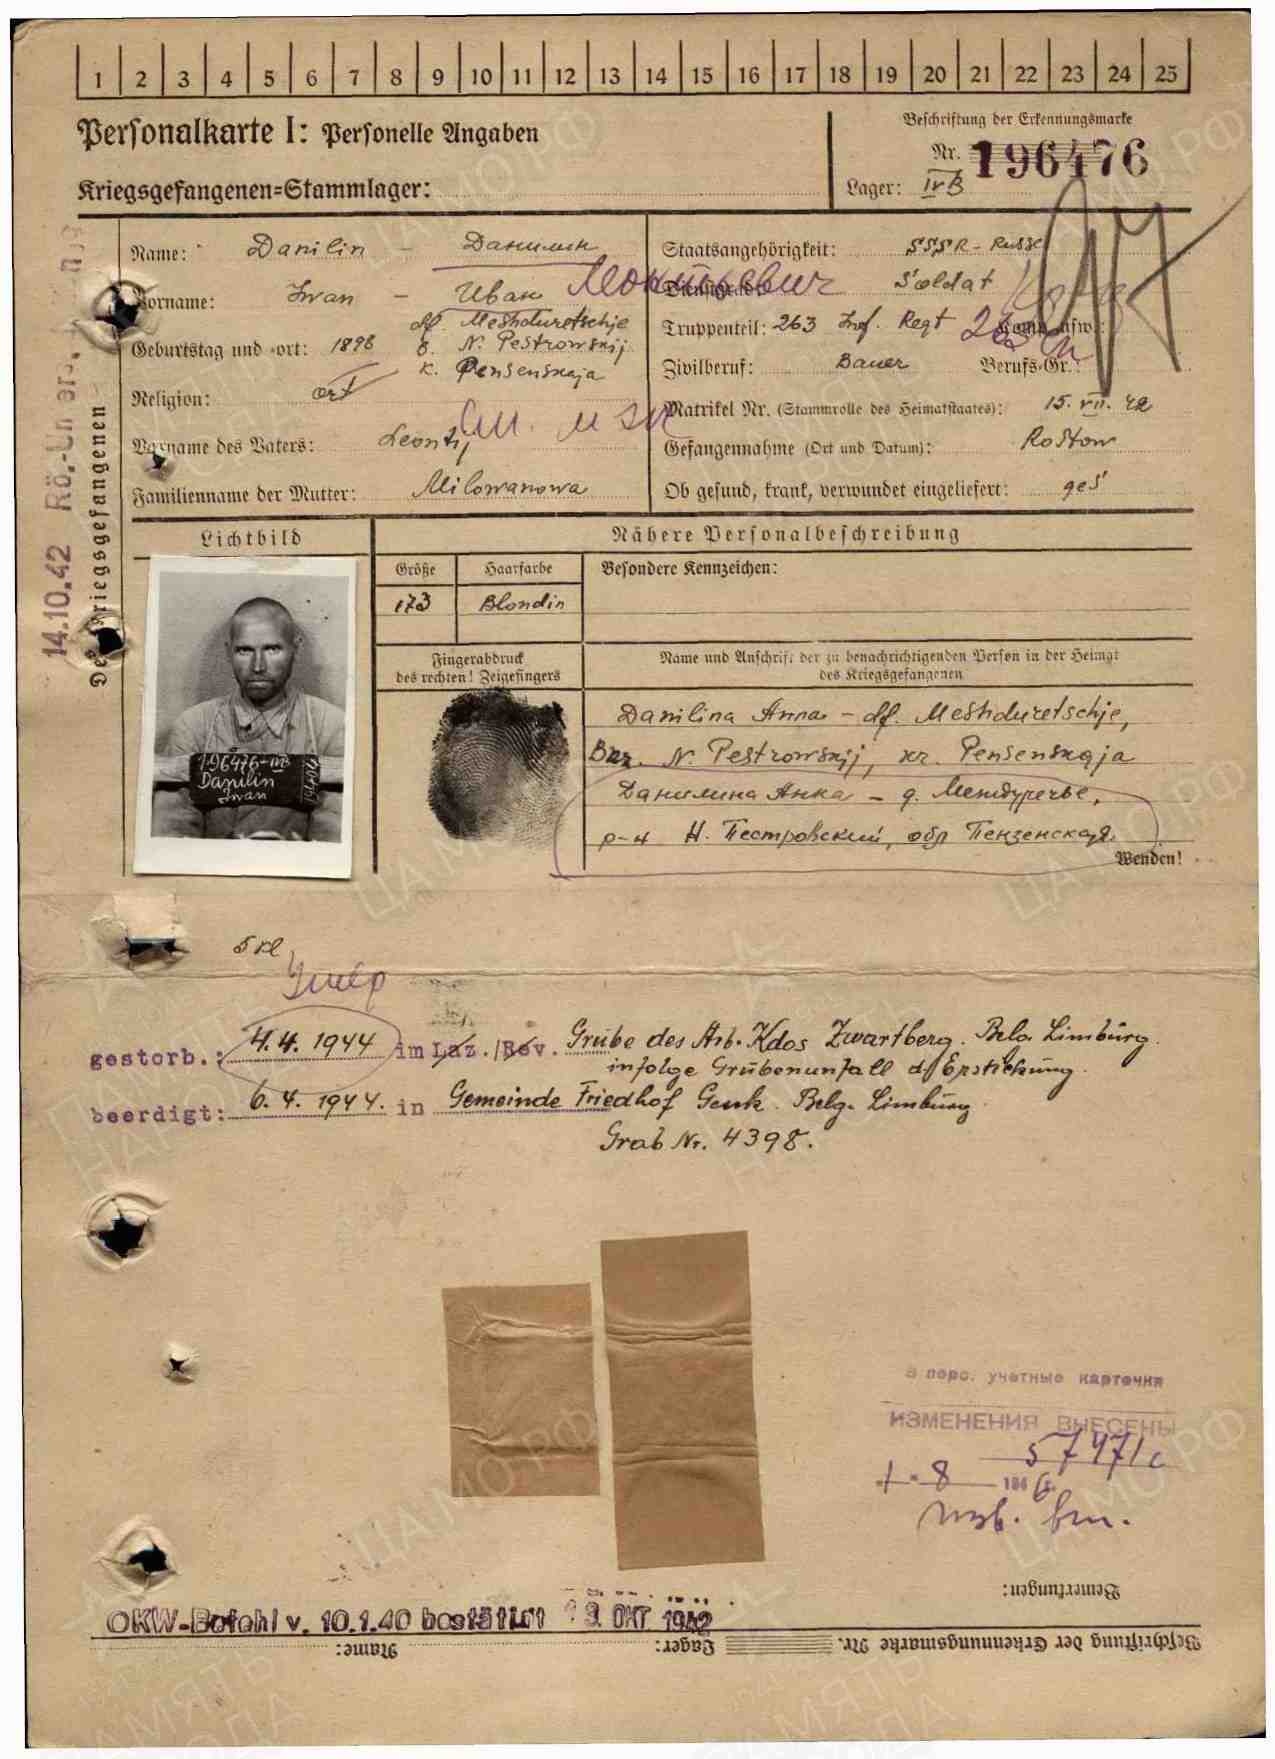 1 2 3 4 5 6 7 8 9 10 11 12 13 14 15 16 17 18 19 20 21 22 23 24 25
Personalkarte I: Personelle Angaben
Beschriftung der Erkennungsmarke
Nr. 196476
Kriegsgefangenen=Stammlager:
Lager: IVB
Des Kriegsgefangenen
14.10.42 Rö.-Un
Name: Danilin - Данилин
Vorname: Iwan - Иван Леонтьевич
Geburtstag und -ort: 1898 df. Meshduretschje
N. Pestrowskij
k. Pensenskaja
Religion: ort
Vorname des Vaters: Leontij
Familienname der Mutter: Milowanowa
Staatsangehörigkeit: SSSR - Russe
Dienstgrad: Soldat
Truppenteil: 263 Inf. Regt Komp. usw.:
Zivilberuf: Bauer Berufs-Gr.:
Matrikel Nr. (Stammrolle des Heimatstaates): 15. VII. 42
Gefangennahme (Ort und Datum): Rostow
Ob gesund, krank, verwundet eingeliefert: ges
Lichtbild
Nähere Personalbeschreibung
Größe Haarfarbe Besondere Kennzeichen:
173 Blondin
Fingerabdruck
des rechten! Zeigefingers
Name und Anschrift der zu benachrichtigenden Person in der Heimat
des Kriegsgefangenen
196476-IVB
Danilin
Iwan
Danilina Anna - df. Meshduretschje,
N. Pestrowskij, kr. Pensenskaja
Данилина Анна - д. Междуречье,
р-н Н. Пестровский, обл Пензенская.
Wenden!
Умер
gestorb.: 4.4.1944 im Laz./Rev. Grube des Arb. Kdos Zwartberg. Belg. Limburg.
infolge Grubenunfall d/ Erstickung.
beerdigt: 6.4.1944. in Gemeinde Friedhof Genk. Belg. Limburg
Grab Nr. 4398.
В перс. учетные карточки
ИЗМЕНЕНИЯ ВНЕСЕНЫ
Bemerkungen:
OKW-Befehl v. 10.1.40 bestätigt OKT 1942
Beschriftung der Erkennungsmarke Nr. Lager: Name:
ЦАМО.РФ
ПАМЯТЬ
НАРОДА